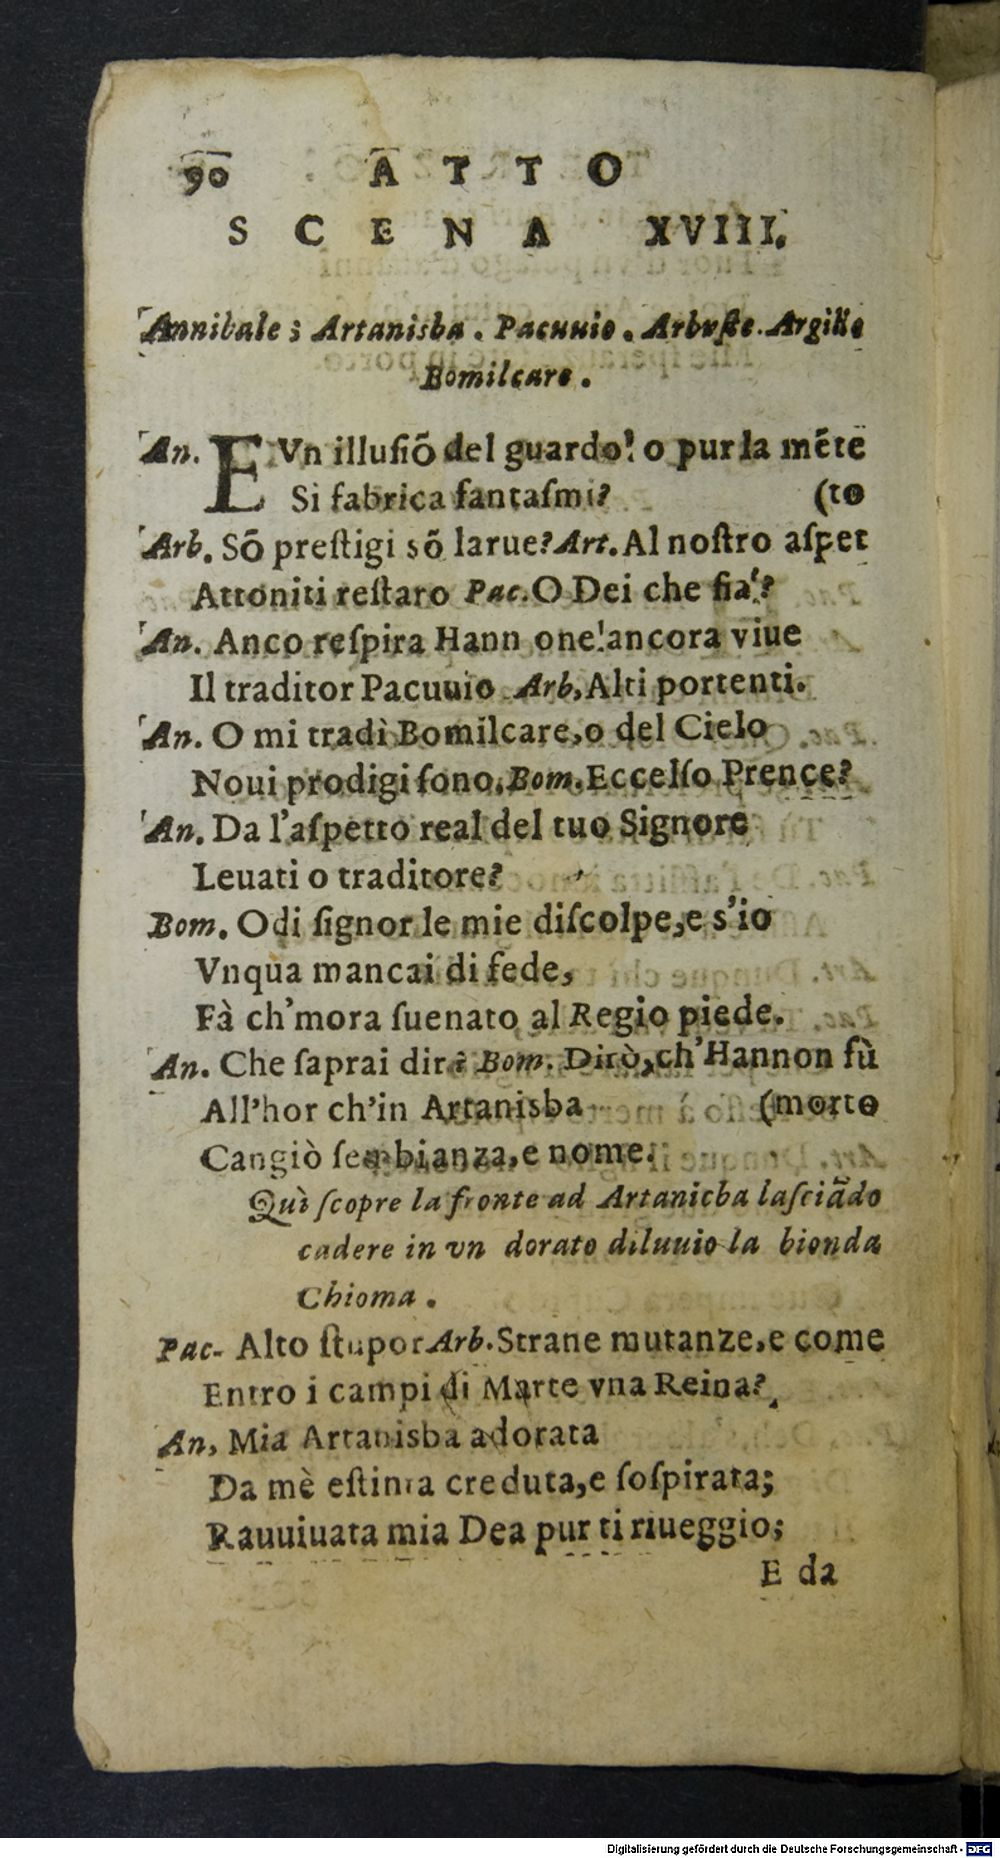 90 ATTO
SCENA XVIII.
Annibale; Artanisba. Pacuuio. Arbuſte. Argille
Bomilcare.
An. E Vn illuſiõ del guardo! o pur la mẽte
Si fabrica fantaſmi? (to
Arb. Sõ preſtigi sõ larue? Art. Al noſtro aſpet
Attoniti reſtaro Pac. O Dei che fia!?
An. Anco reſpira Hann one! ancora viue
Il traditor Pacuuio Arb, Alti portenti.
An. O mi tradì Bomilcare, o del Cielo
Noui prodigi ſono. Bom. Eccelſo Prence?
An. Da l'aſpetto real del tuo Signore
Leuati o traditore?
Bom. Odi ſignor le mie diſcolpe, e s'io
Vnqua mancai di fede,
Fà ch'mora ſuenato al Regio piede.
An. Che ſaprai dir? Bom. Dirò, ch'Hannon fù
All'hor ch'in Artanisba (morto
Cangiò ſembianza, e nome.
Quì ſcopre la fronte ad Artanicba laſciãdo
cadere in vn dorato diluuio la bionda
Chioma.
Pac. Alto ſtupor Arb. Strane mutanze, e come
Entro i campi di Marte vna Reina?
An, Mia Artanisba adorata
Da mè eſtinta creduta, e ſoſpirata;
Rauuiuata mia Dea pur ti riueggio;
E da
Digitalisierung gefördert durch die Deutsche Forschungsgemeinschaft - DFG